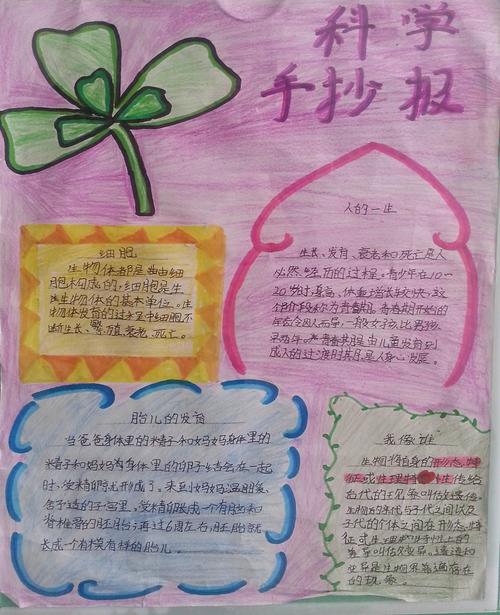 科学
手抄报
人的一生
生长、发育、衰老和死亡是人
必然经历的过程。青少年在10～
20岁时,身高、体重增长较快,这
个阶段称为青春期。青春期开始的
年龄因人而异,一般女孩比男孩
青春期是由儿童发育到
成人的过渡时期,是人身心发展。
细胞
生物体都是由细
胞构成的,细胞是生
生物体的基本单位。生
物体发育的过程中细胞不
断生长、繁殖、衰老、死亡。
胎儿的发育
当爸爸身体里的精子和妈妈身体里的
精子和妈妈身体里的卵子结合在一起
时,受精卵就形成了。来到妈妈温暖、
舒适的子宫里,受精卵成一个有胞和
脊椎骨的胚胎;再过6周左右,胚胎就
长成一个有模有样的胎儿。
我像谁
生物将自身的形态、特
征或生理特 性传给
后代的现象叫做遗传。
生物的亲代与子代之间以及
子代的个体之间在形态、特
征或生理
异叫做变异。遗传和
变异是生物界普遍存在
的现象。